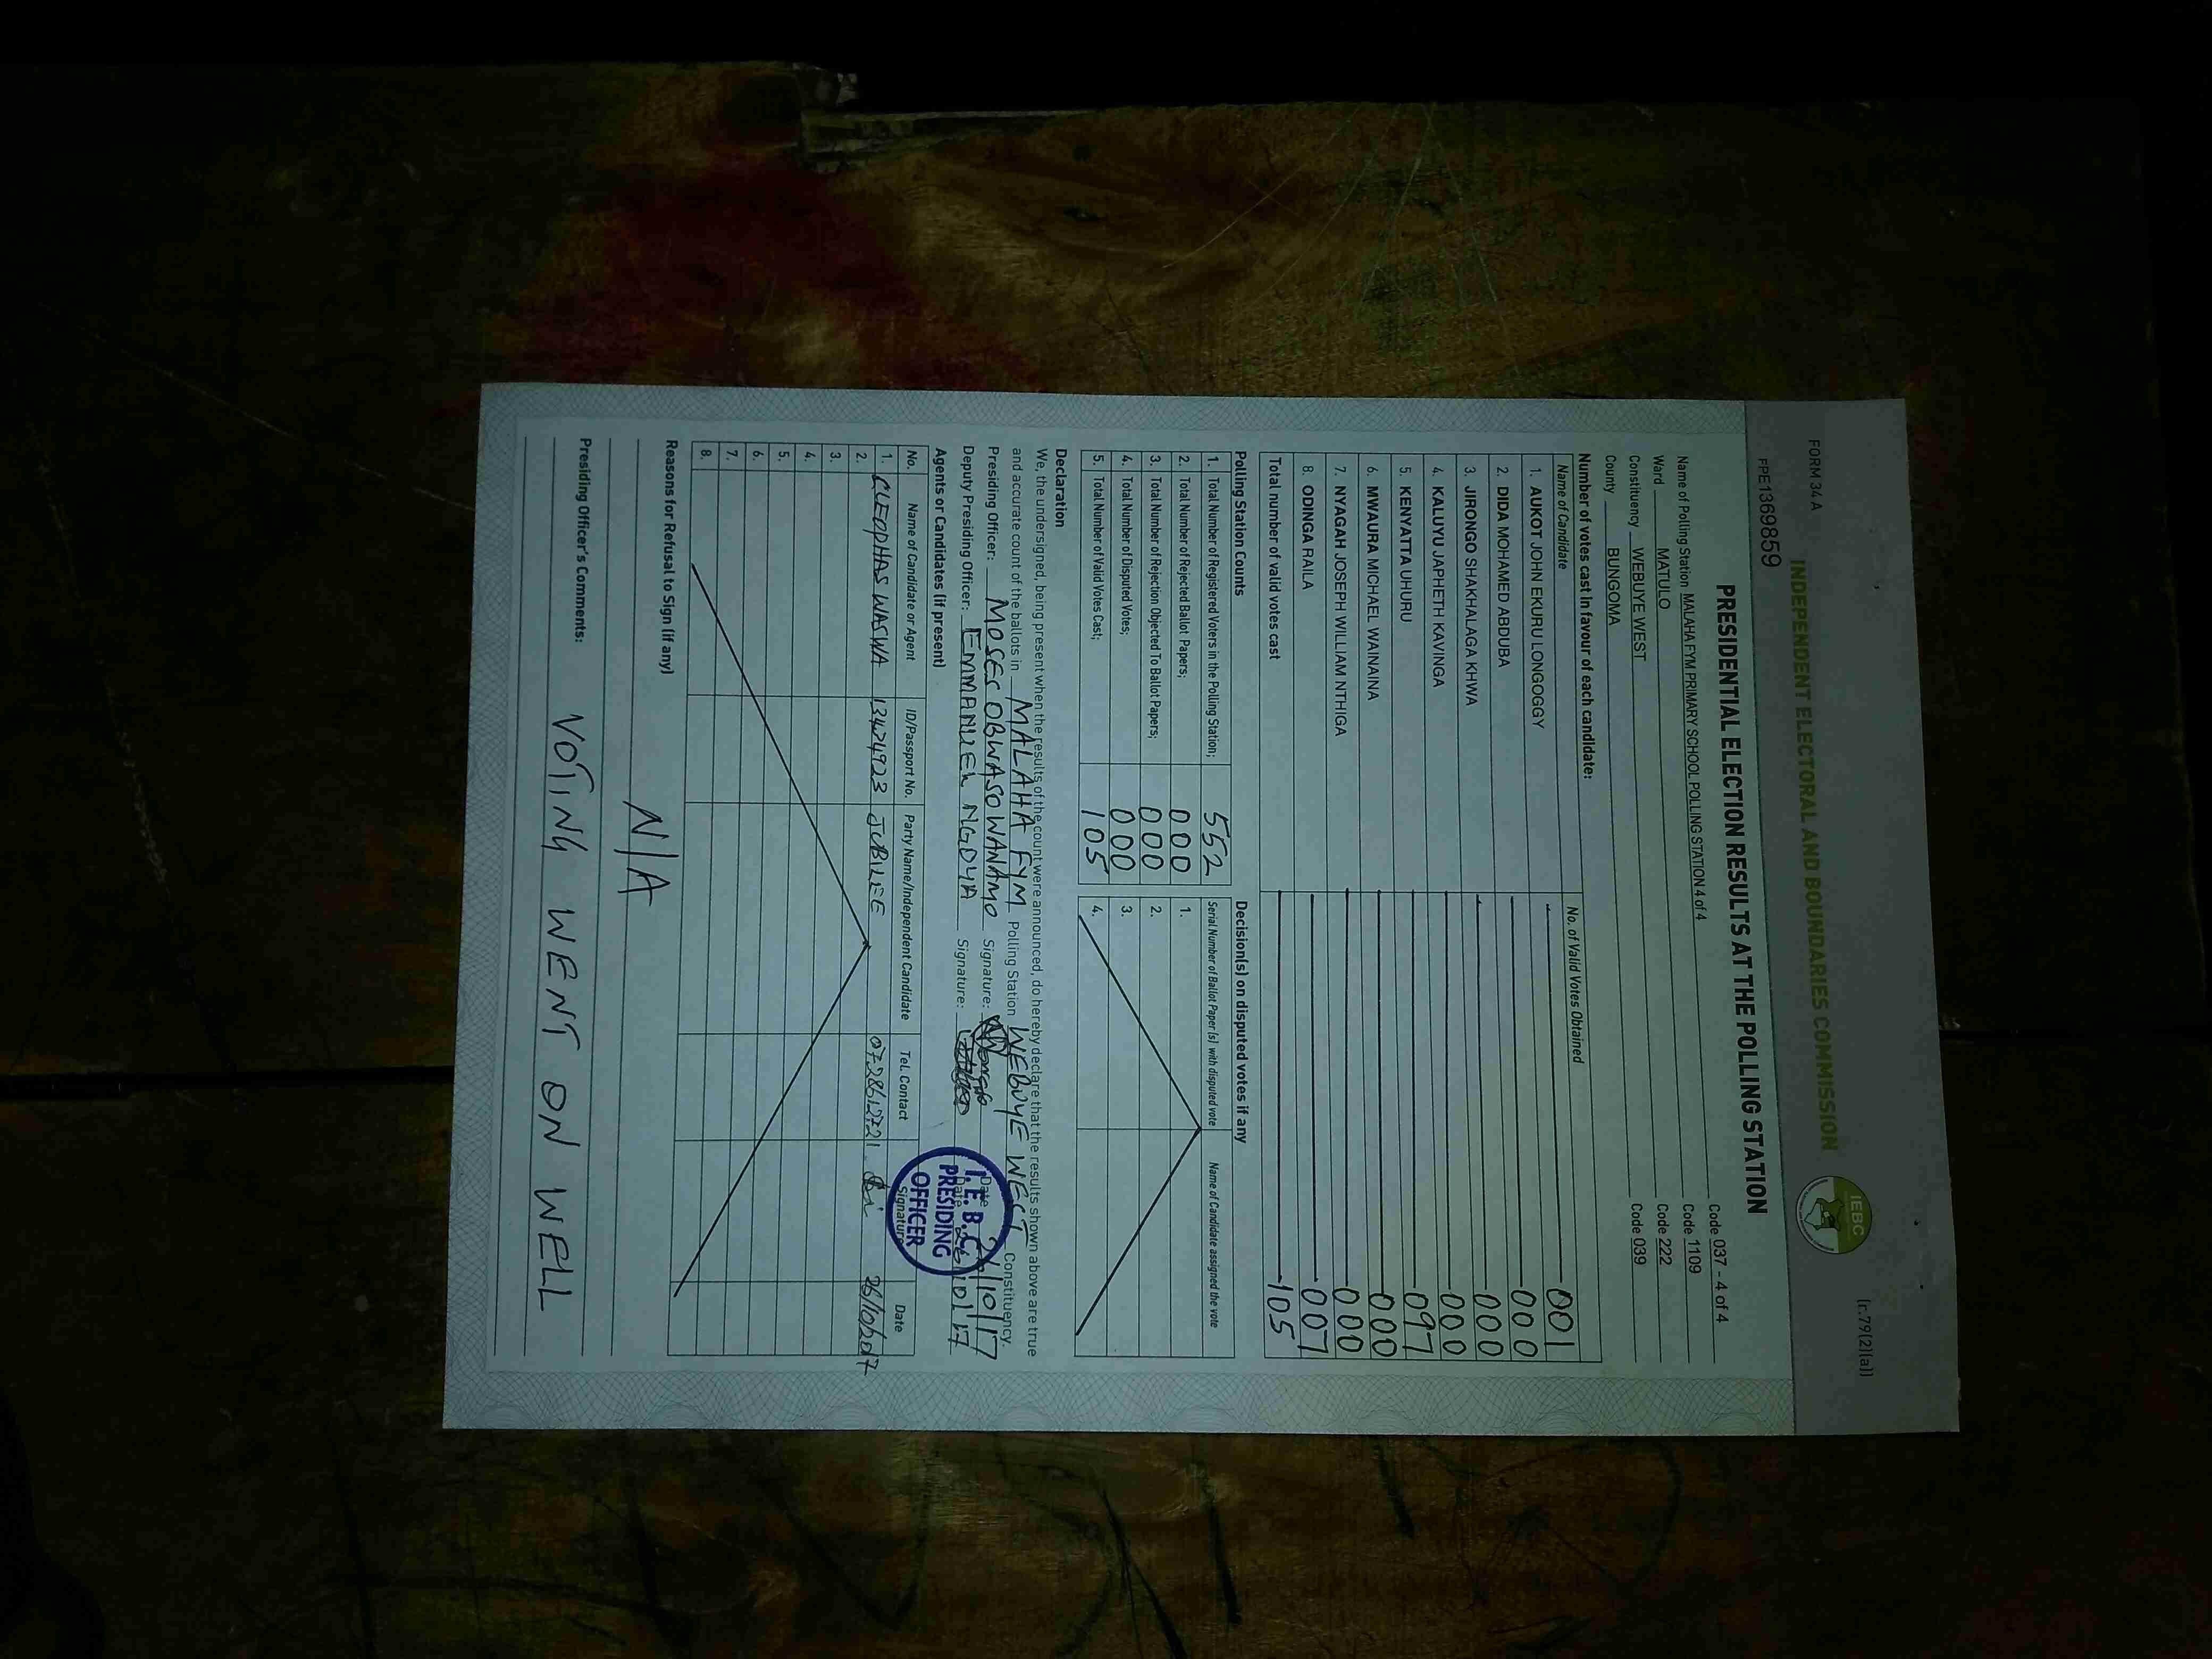 FORM 34 A
(r.79(2)(a))
INDEPENDENT ELECTORAL AND BOUNDARIES COMMISSION
IEBC
FPE1369859
PRESIDENTIAL ELECTION RESULTS AT THE POLLING STATION
Name of Polling Station MALAHA FYM PRIMARY SCHOOL POLLING STATION 4 of 4 Code 037 - 4 of 4
Ward MATULO Code 1109
Constituency WEBUYE WEST Code 222
County BUNGOMA Code 039
Number of votes cast in favour of each candidate:
Name of Candidate No. of Valid Votes Obtained
1. AUKOT JOHN EKURU LONGOGGY 001
2. DIDA MOHAMED ABDUBA 000
3. JIRONGO SHAKHALAGA KHWA 000
4. KALUYU JAPHETH KAVINGA 000
5. KENYATTA UHURU 097
6. MWAURA MICHAEL WAINAINA 000
7. NYAGAH JOSEPH WILLIAM NTHIGA 000
8. ODINGA RAILA 007
Total number of valid votes cast 105
Polling Station Counts Decision(s) on disputed votes if any
1. Total Number of Registered Voters in the Polling Station; 552 Serial Number of Ballot Paper (s) with disputed vote Name of Candidate assigned the vote
2. Total Number of Rejected Ballot Papers; 000 1.
3. Total Number of Rejection Objected To Ballot Papers; 000 2.
4. Total Number of Disputed Votes; 000 3.
5. Total Number of Valid Votes Cast; 105 4.
Declaration
We, the undersigned, being present when the results of the count were announced, do hereby declare that the results shown above are true
and accurate count of the ballots in MALAHA FYM Polling Station WEBUYE WEST Constituency.
Presiding Officer: MOSES OBWASO WANAMO Signature: Date 26/10/17
Deputy Presiding Officer: EMMANUEL Signature: Date 26/10/17
I.E.B.C.
PRESIDING
OFFICER
Agents or Candidates (if present)
No. Name of Candidate or Agent ID/Passport No. Party Name/Independent Candidate Tel. Contact Signature Date
1. CLEOPHAS WASWA 13424923 JUBILEE 26/10/2017
2.
3.
4.
5.
6.
7.
8.
Reasons for Refusal to Sign (if any)
N/A
Presiding Officer's Comments:
VOTING WENT ON WELL